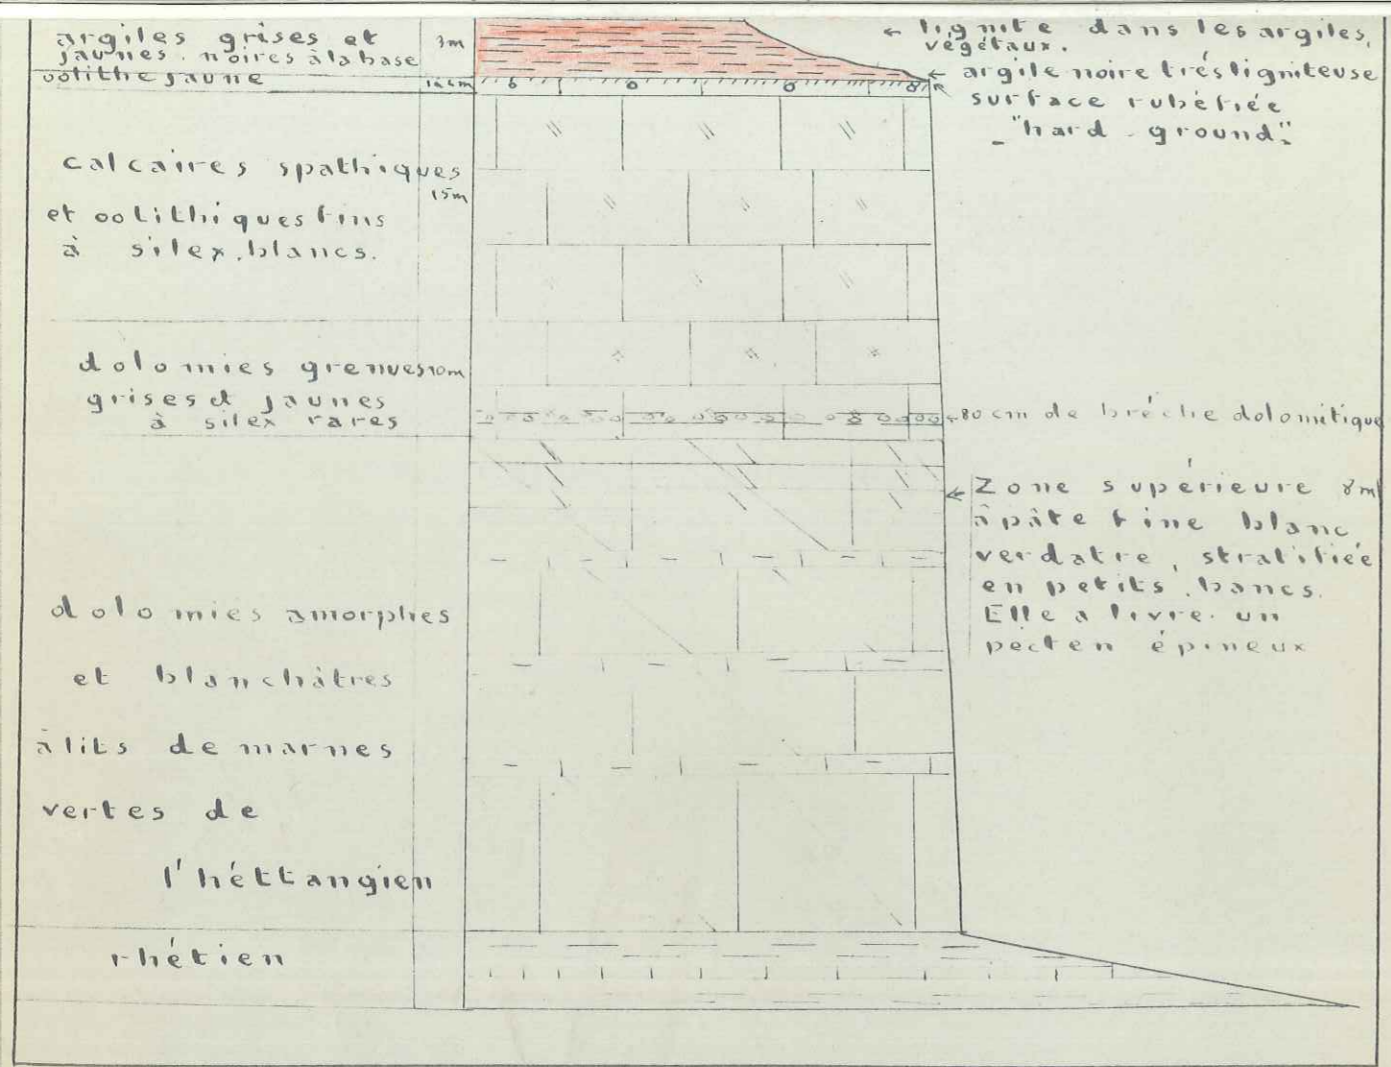 argiles grises et
jaunes. noires à la base
3m
oolithe jaune
calcaires spathiques
15m
et oolithiques fins
à silex blancs.
dolomies grenues 10m
grises et jaunes
à silex rares
dolomies amorphes
et blanchâtres
à lits de marnes
vertes de
l'héttangien
rhétien
← lignite dans les argiles,
végétaux.
← argile noire très ligniteuse
surface rubéfiée
"hard-ground"
←80 cm de brèche dolomitique
← Zone supérieure 8m
à pâte fine blanc
verdatre, stratifiée
en petits bancs.
Elle a livré un
pecten épineux